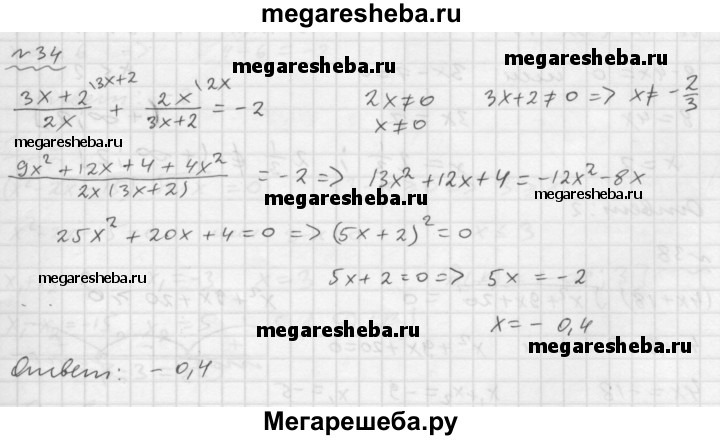 megaresheba.ru
№34
megaresheba.ru megaresheba.ru
(3x+2)/2x \3x+2 + 2x/(3x+2) \2x = -2 2x≠0 3x+2≠0 => x≠ -2/3
x≠0
megaresheba.ru
(9x²+12x+4+4x²)/(2x(3x+2)) = -2 => 13x²+12x+4=-12x²-8x
megaresheba.ru megaresheba.ru
25x²+20x+4=0 => (5x+2)²=0
megaresheba.ru 5x+2=0 => 5x = -2
megaresheba.ru x=- 0,4
megaresheba.ru
Ответ: - 0,4
Мегарешеба.ру